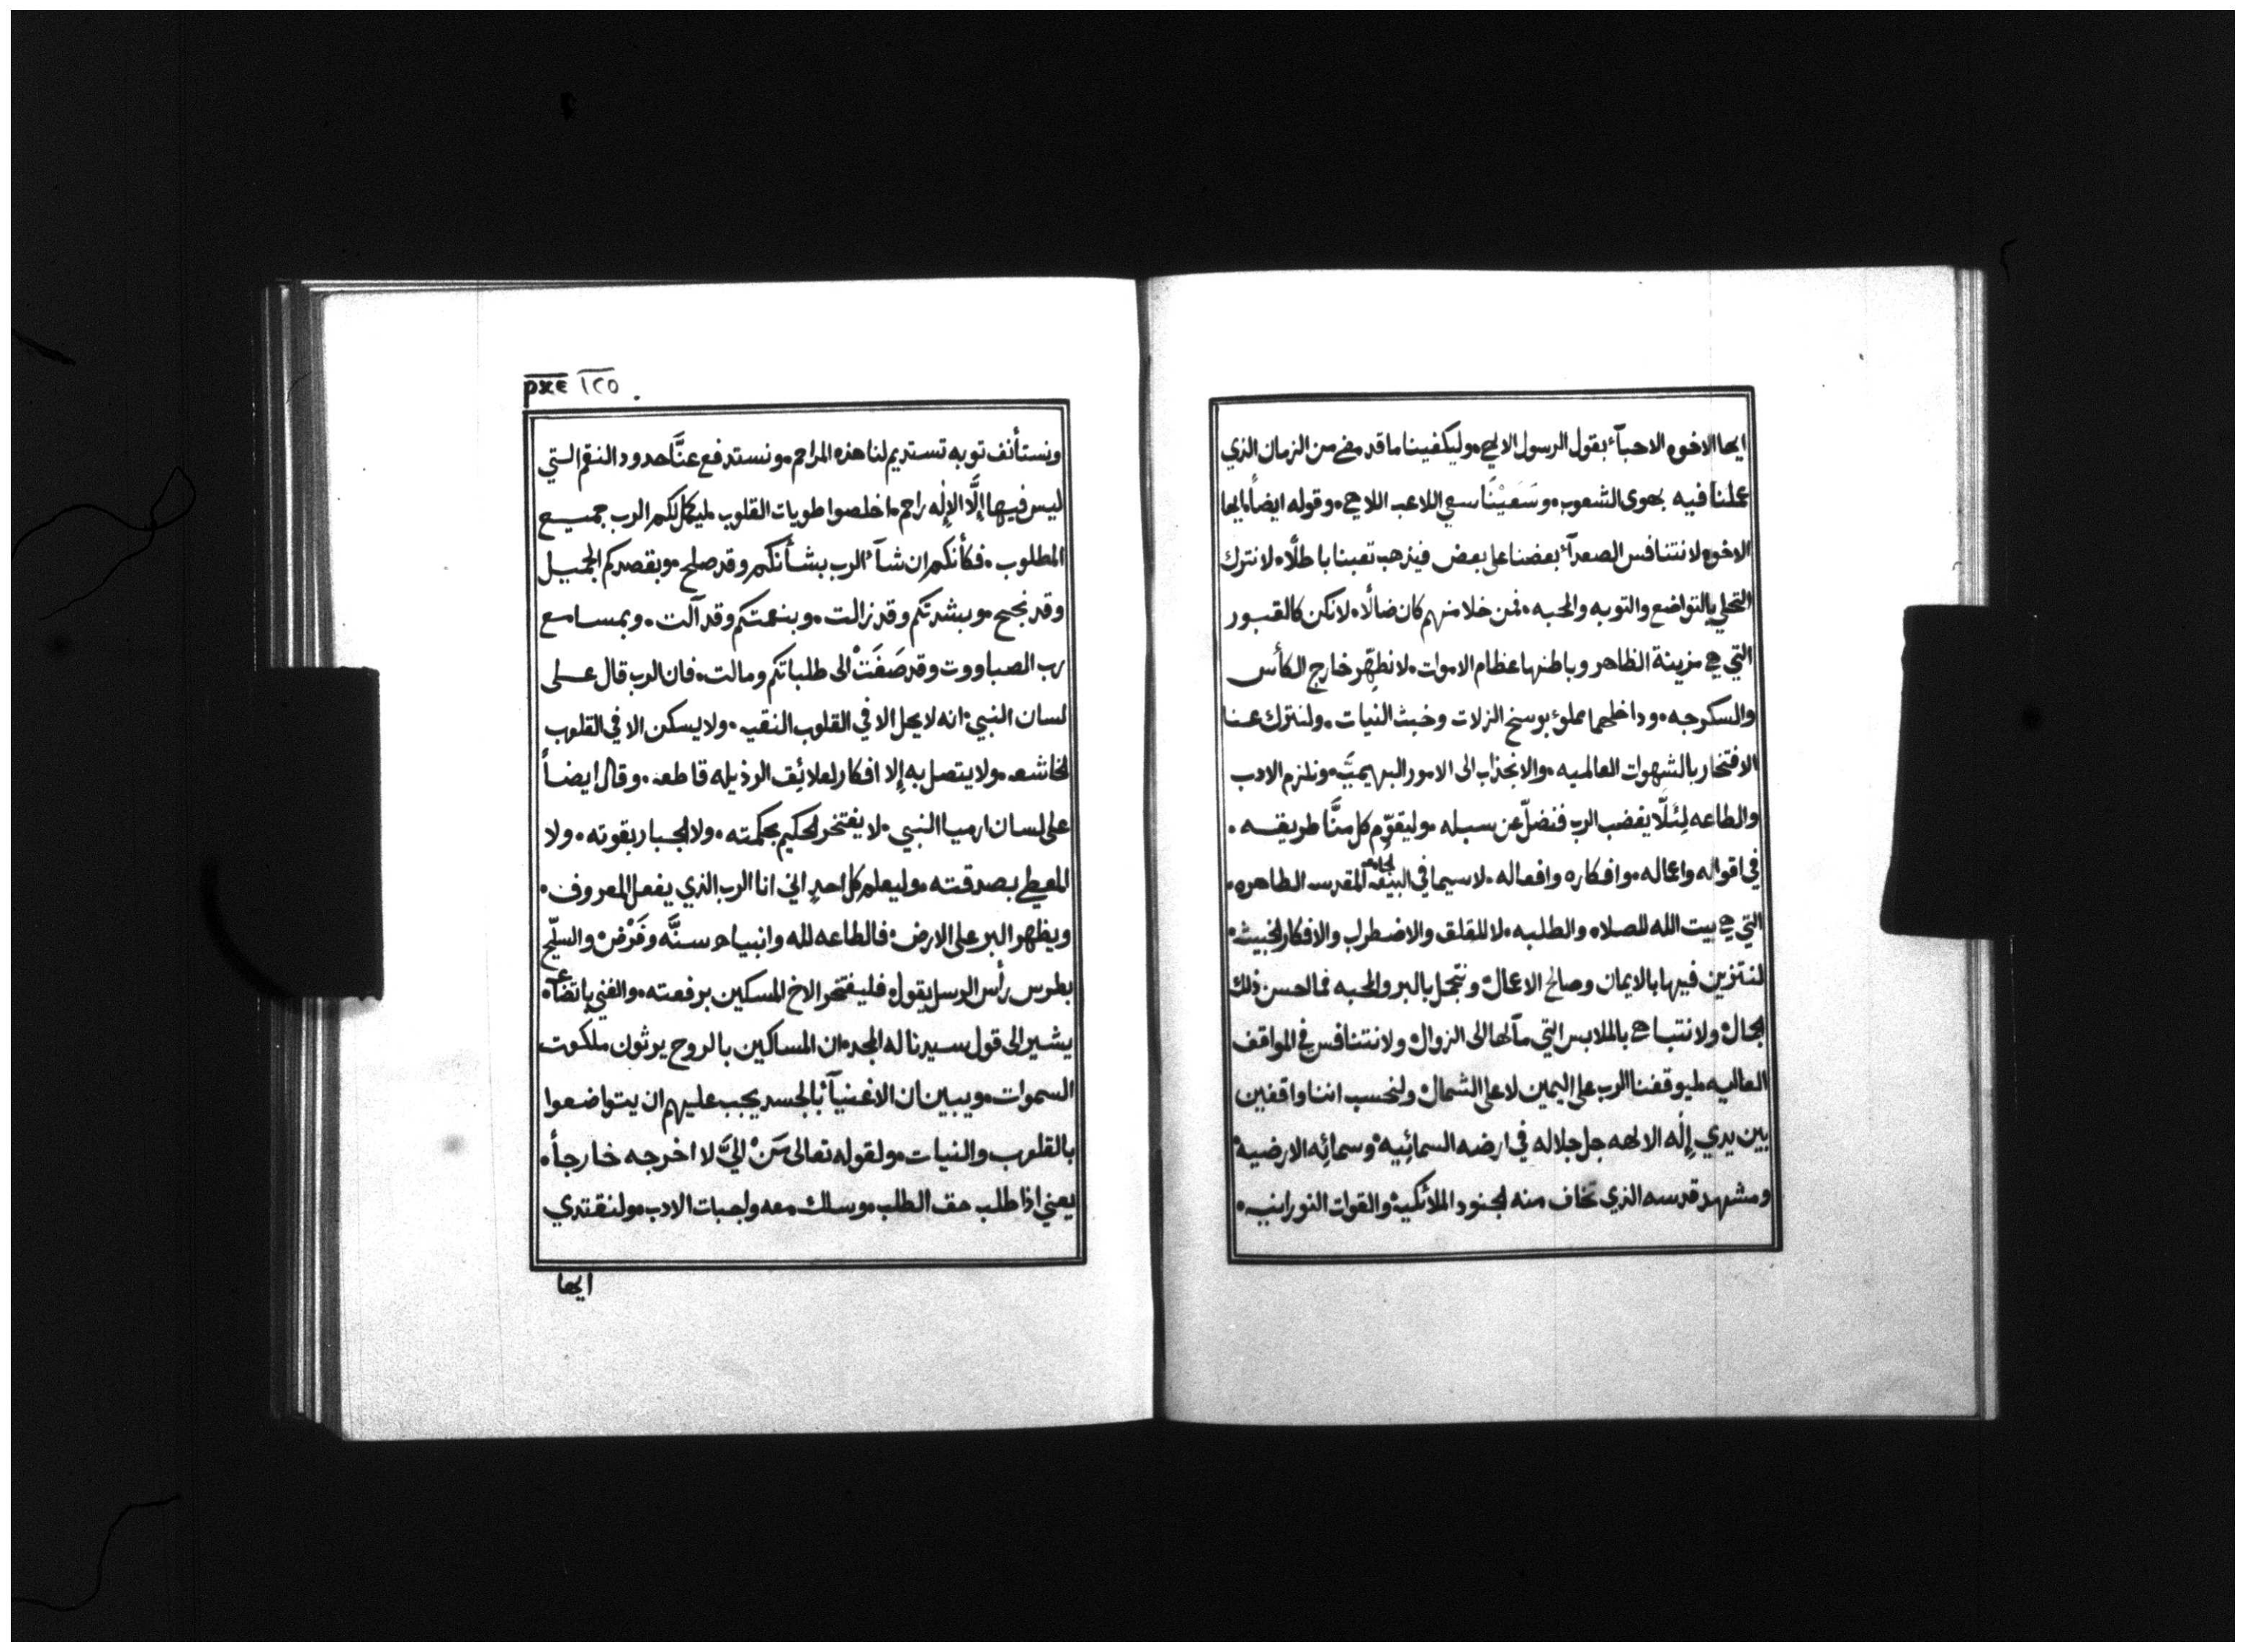 ١٢٥
ونستأنف توبه تستديم لنا هذه المراحم. ونستدفع عنَّا حدود النقم التي
ليس فيها إلَّا الإله راحم. اخلصوا طويات القلوب. ليكمل لكم الرب جميع
المطلوب. فكأنكم ان شآء الرب بشأنكم وقد صلح. وبقصدكم الجميل
وقد نجح. وبشدتكم وقد زالت. وبنعمتكم وقد آلت. وبمسامع
رب الصباووت وقد صَغَتْ الى طلباتكم ومالت. فان الرب قال على
لسان النبي. انه لا يحل الا في القلوب النقيه. ولا يسكن الا في القلوب
الخاشعه. ولا يتصل به إلا افكار لعلائِق الرذيله قاطعه. وقال ايضاً
على لسان ارميا النبي. لا يفتخر الحكيم بحكمته. ولا الجبار بقوته. ولا
المعيطي بصدقته. وليعلم كل احدٍ اني انا الرب الذي يفعل المعروف.
ويظهر البر على الارض. فالطاعه لله وانبياه سنَّه وفَرْض. والسلّيح
بطرس رأس الرسل يقول. فليفتخر الاخ المسكين برفعته. والغني باتضاعه
يشير الى قول سيدنا له المجد. ان المساكين بالروح يرثون ملكوت
السموات. ويبين ان الاغنيآء بالجسد يجب عليهم ان يتواضعوا
بالقلوب والنيات. ولقوله تعالى مَنْ اليَّ لا اخرجه خارجاً.
يعني اذا طلب حق الطلب. وسلك معه واجبات الادب. ولنقتدي
ايها
ايها الاخوه الاحبآء بقول الرسول الالهي. وليكفينا ما قد مضي من الزمان الذي
عملنا فيه بهوى الشعوب. وسَعَيْنَا سعي اللاعب اللاهي. وقوله ايضاً. ايها
الاخوه لا نتنافس الصعدآء بعضنا على بعض فيذهب تعبنا باطلًا. لا نترك
التحلي بالتواضع والتوبه والمحبه. فمن خلا منهم كان ضالًا. لا نكن كالقبور
التي هي مزينة الظاهر وباطنها عظام الاموات. لا نطهّر خارج الكأس
والسكرجه. وداخلهما مملوء بوسخ الزلات وخبث النيات. ولنترك عنا
الافتخار بالشهوات العالميه. والانجذاب الى الامور البهيميَّه. ونلزم الادب
والطاعه لِئَلَّا يغضب الرب فنضلّ عن سبله. وليقوِّم كل منَّا طريقه.
في اقواله واعماله. وافكاره وافعاله. لا سيما في البيعه الجامعه المقدسه الطاهره.
التي هي بيت الله للصلاه والطلبه. لا للقلق والاضطراب والافكار الخبيثه.
لنتزين فيها بالايمان وصالح الاعمال. ونتجمل بالبر والمحبه فما احسن ذلك
الجمال. ولا نتباهي بالملابس التي مآلها الى الزوال. ولا نتنافس في المواقف
العاليه. ليوقفنا الرب على اليمين لا على الشمال. ولنحسب اننا واقفين
بين يدي إله الالهه جل جلاله في ارضه السمائِيه. وسمائِه الارضيه.
ومشهد قدسه الذي تخاف منه الجنود الملائكيه. والقوات النورانيه.